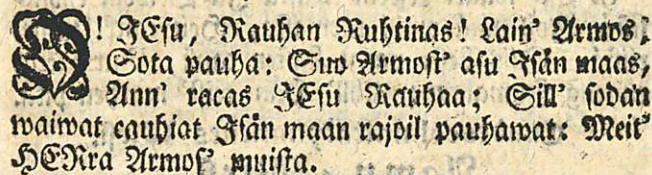 O! JEsu, Rauhan Ruhtinas! Lain' Armos,
Sota pauha: Suo Armost' asu Isän maas,
Ann' racas JEsu Rauhaa; Sill' sodan
waiwat cauhiat Isän maan rajoil pauhawat: Meit'
HERra Armos' muista.